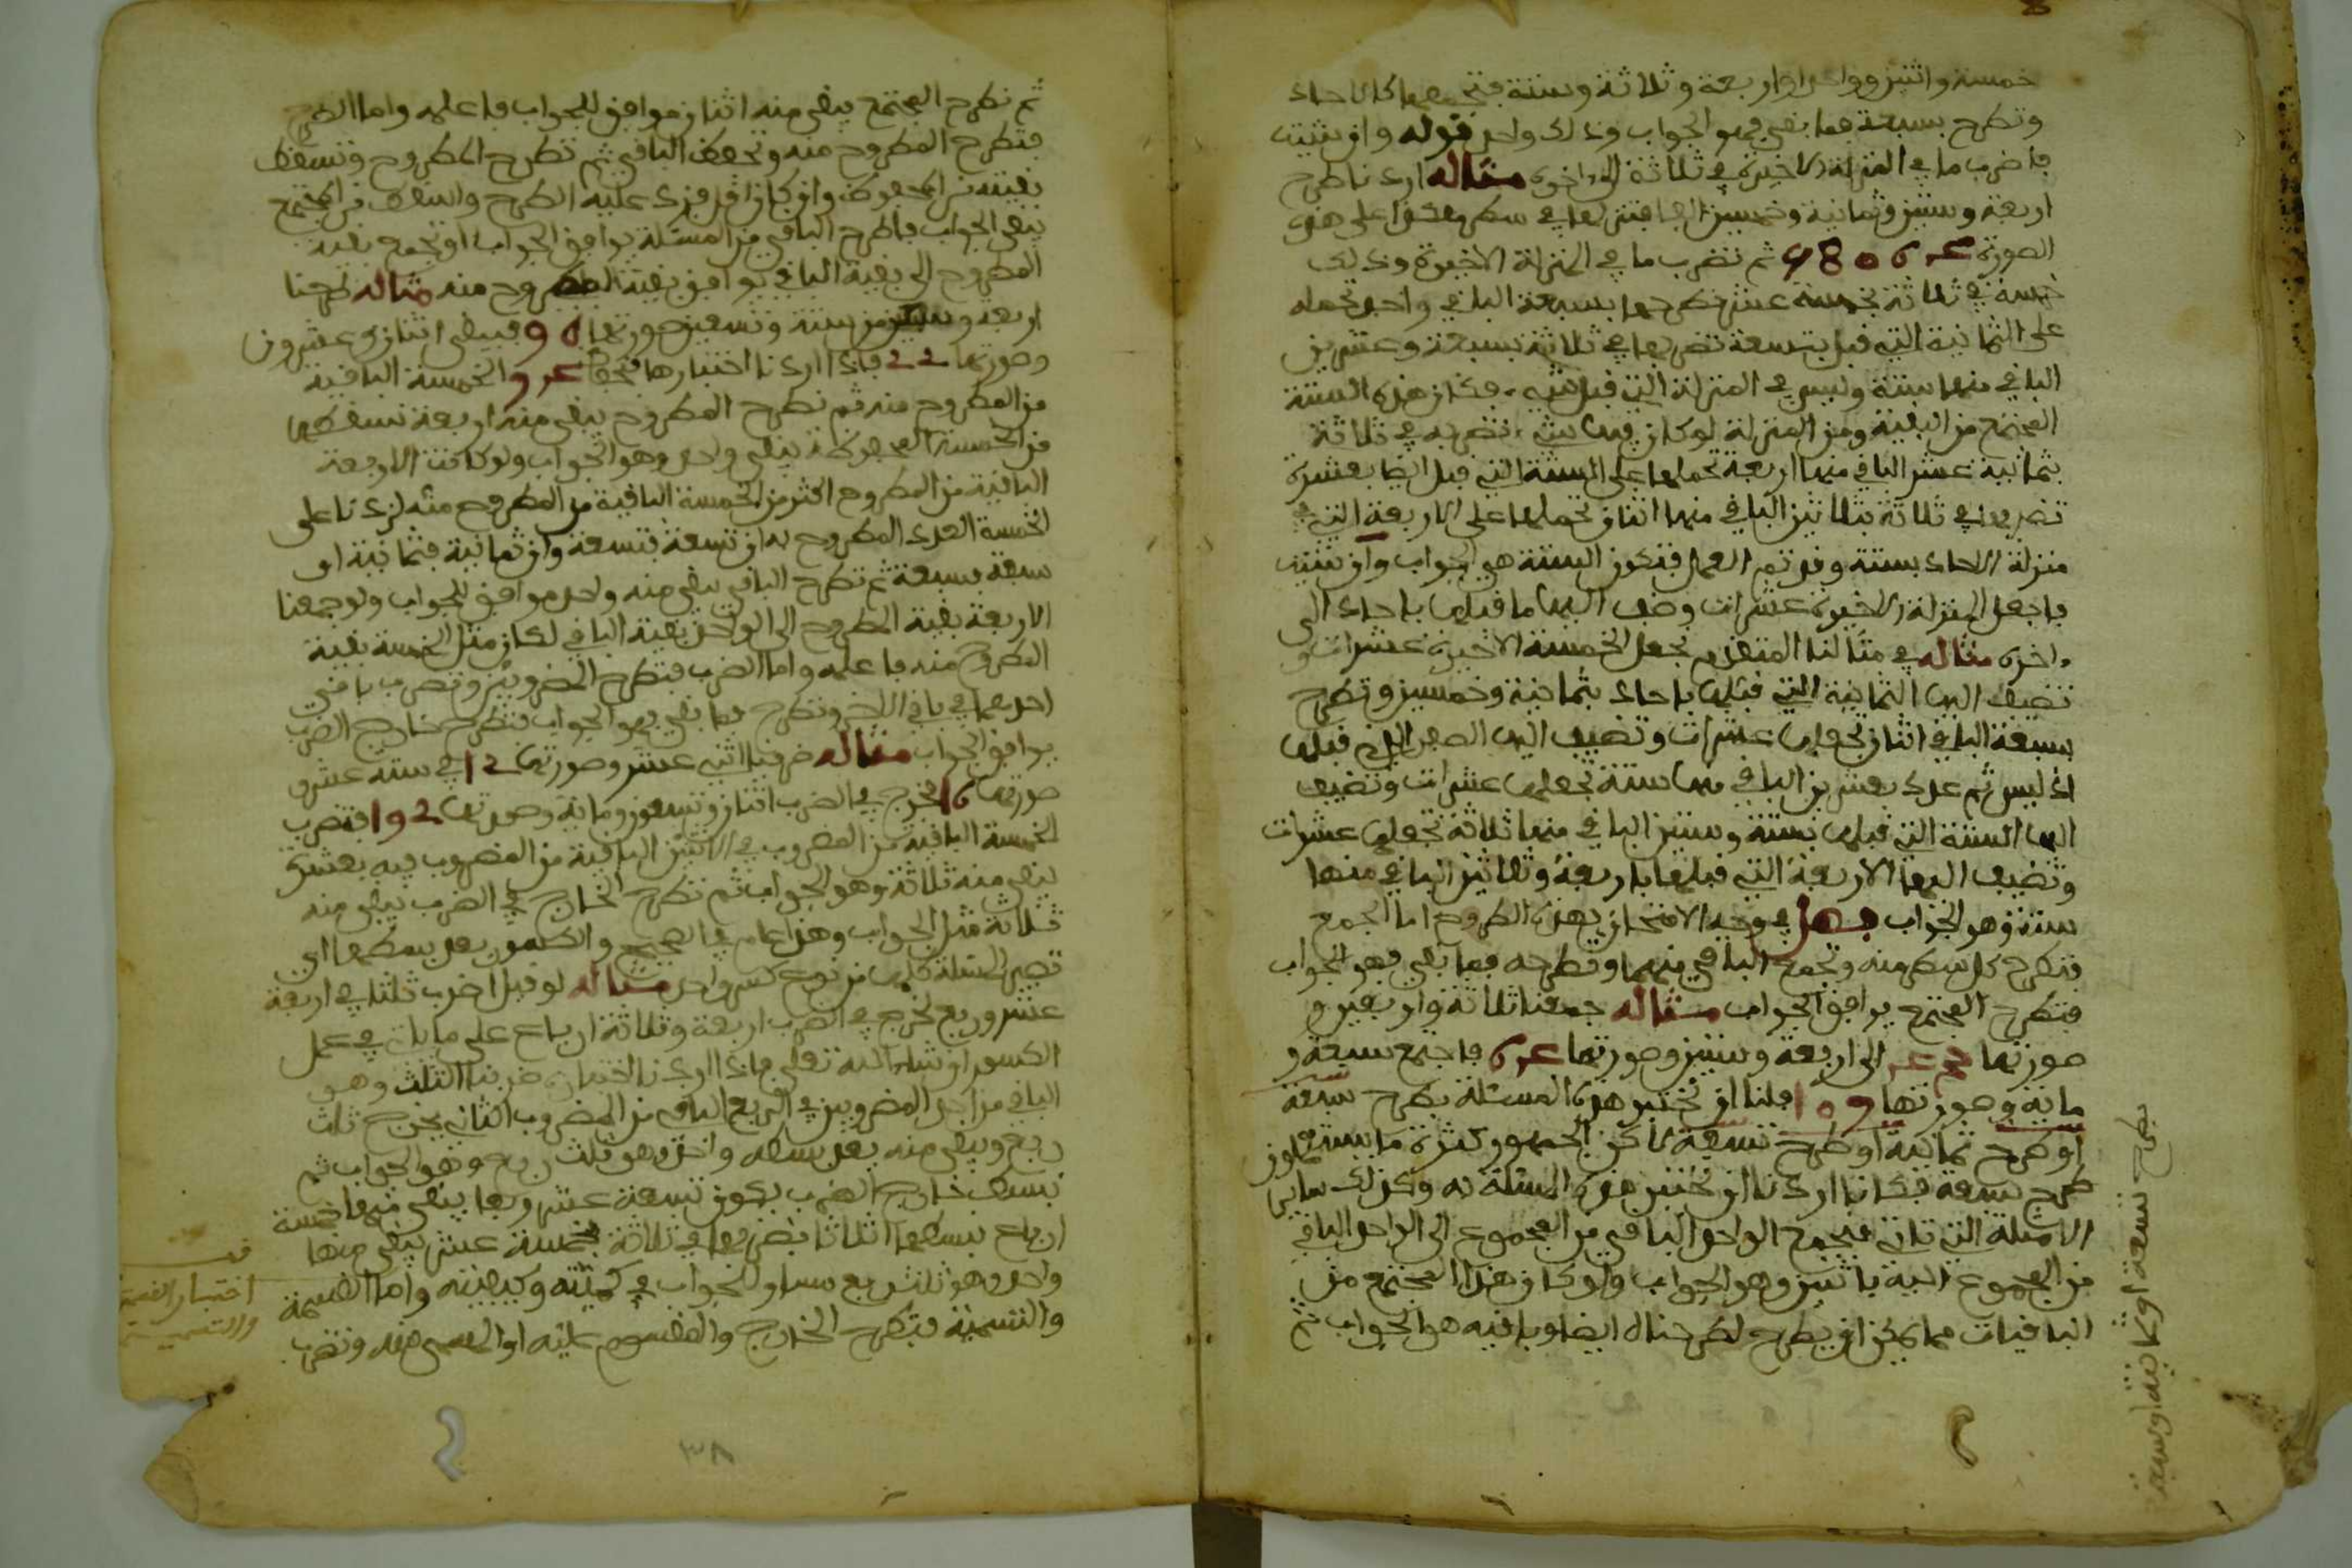 خمسة واثنين وواحدا واربعة وثلاثة وستة فتجمعها كالاحاد
وتطرح بسبعة فما بقي فهو الجواب وذلك واحد قوله وان شئت
فاضرب ما في المنزلة الاخيرة في ثلاثة الى اخره مثاله اردنا طرح
اربعة وستين وثمانية وخمسين الفا فتنزلها في سطر هكذا على هذه
الصورة 58064 ثم تضرب ما في المنزلة الاخيرة وذلك
خمسة في ثلاثة بخمسة عشر تطرحها بسبعة الباقي واحد تحمله
على الثمانية التي قبل بتسعة تضربها في ثلاثة بسبعة وعشرين
الباقي منها ستة وليس في المنزلة التي قبل شيء فكان هذه الستة
المجتمع من البقية ومن المنزلة لو كان فيها شيء تضربه في ثلاثة
بثمانية عشر الباقي منها اربعة تحملها على الستة التي قبل ايضا بعشرة
تضربها في ثلاثة بثلاثين الباقي منها اثنان تحملها على الاربعة التي في
منزلة الاحاد بستة وقد تم العمل فتكون الستة هي الجواب وان شئت
فاجعل المنزلة الاخيرة عشرات وضف اليها ما قبلها باحاد الى
اخره مثاله في مثالنا المتقدم تجعل الخمسة الاخيرة عشرات و
تضيف اليها الثمانية التي قبلها باحاد بثمانية وخمسين وتطرح
بسبعة الباقي اثنان تجعلها عشرات وتضيف اليها الصفر الذي قبلها
اذ ليس ثم عدد بعشرين الباقي منها ستة تجعلها عشرات وتضيف
اليها الستة التي قبلها بستة وستين الباقي منها ثلاثة تجعلها عشرات
وتضيف اليها الاربعة التي قبلها باربعة وثلاثين الباقي منها
ستة وهو الجواب فصل في وجه الامتحان بهذه الطروح اما الجمع
فتطرح كل سطر منه وتجمع الباقي منهما وتطرحه فما بقي فهو الجواب
فتطرح المجتمع يوافق الجواب مثاله جمعنا ثلاثة واربعين و
صورتها 43 الى اربعة وستين وصورتها 64 فاجتمع سبعة و
مائة وصورتها 107 فلنا ان نختبر هذه المسئلة بطرح سبعة
او طرح ثمانية او طرح تسعة لاكن الجمهور كثيرة ما يستعملون
طرح سبعة فكانا اردنا ان نختبر هذه المسئلة به وكذلك سائر
الامثلة التي تاتي فنجمع الواحد الباقي من المجموع الى الواحد الباقي
من المجموع اليه باثنين وهو الجواب ولو كان هذا المجتمع من
الباقيات مما يمكن ان يطرح لطرحناه ايضا وباقيه هو الجواب ثم
بطرح تسعة او ثمانية او سبعة
ثم تطرح المجتمع يبقى منه اثنان موافق للجواب فاعلمه واما الطرح
فتطرح المطروح منه وتحفظ الباقي ثم تطرح المطروح وتسقط
بقيته من المحفوظ وان كان اقل فزد عليه الطرح واسقط من المجتمع
يبقى الجواب فاطرح الباقي من المسئلة يوافق الجواب او تجمع بقية
المطروح الى بقية الباقي يوافق بقية المطروح منه مثاله طرحنا
اربعة وسبعين من ستة وتسعين صورتها 96 فيبقى اثنان وعشرون
وصورتها 22 فاذا اردنا اختبارها فتحفظ والخمسة الباقية
من المطروح منه ثم تطرح المطروح يبقى منه اربعة تسقطها
من الخمسة المحفوظة يبقى واحد وهو الجواب ولو كانت الاربعة
الباقية من المطروح اكثر من الخمسة الباقية من المطروح منه لزدنا على
الخمسة العدد المطروح به ان تسعة فتسعة وان ثمانية فثمانية او
سبعة بسبعة ثم تطرح الباقي يبقى منه واحد موافق للجواب ولو جمعنا
الاربعة بقية المطروح الى الواحد بقية الباقي لكان مثل الخمسة بقية
المطروح منه فاعلمه واما الضرب فتطرح المضروبين وتضرب باقي
احدهما في باقي الاخر وتطرح فما بقي فهو الجواب فتطرح خارج الضرب
يوافق الجواب مثاله ضربنا اثني عشر وصورتها 12 في ستة عشر و
صورتها 16 يخرج في الضرب اثنان وتسعون ومائة وصورتها 192 فتضرب
الخمسة الباقية من المضروب في الاثنين الباقية من المضروب فيه بعشرة
يبقى منه ثلاثة وهو الجواب ثم تطرح الخارج في الضرب يبقى منه
ثلاثة مثل الجواب وهذا عام في الصحيح والكسور بعد بسطها اي
تصير المسئلة كلها من نوع كسر واحد مثاله لو قيل اضرب ثلثا في اربعة
عشر وربع يخرج في الضرب اربعة وثلاثة ارباع على ما ياتي في عمل
الكسور ان شاء الله تعلى فاذا اردنا اختباره ضربنا الثلث وهو
الباقي من احد المضروبين في الربع الباقي من المضروب الثاني يخرج ثلث
ربع ويبقى منه بعد بسطه واحد وهو ثلث ربع وهو الجواب ثم
نبسط خارج الضرب يكون تسعة عشر ربعا يبقى منها خمسة
ارباع نبسطها اثلاثا بضربها في ثلاثة بخمسة عشر يبقى منها
واحد وهو ثلث ربع مساو للجواب في كميته وكيفيته واما القسمة
والتسمية فتطرح الخارج والمقسوم عليه او المسمى منه وتضرب
قف
اختبار القسمة
والتسمية
٣٨